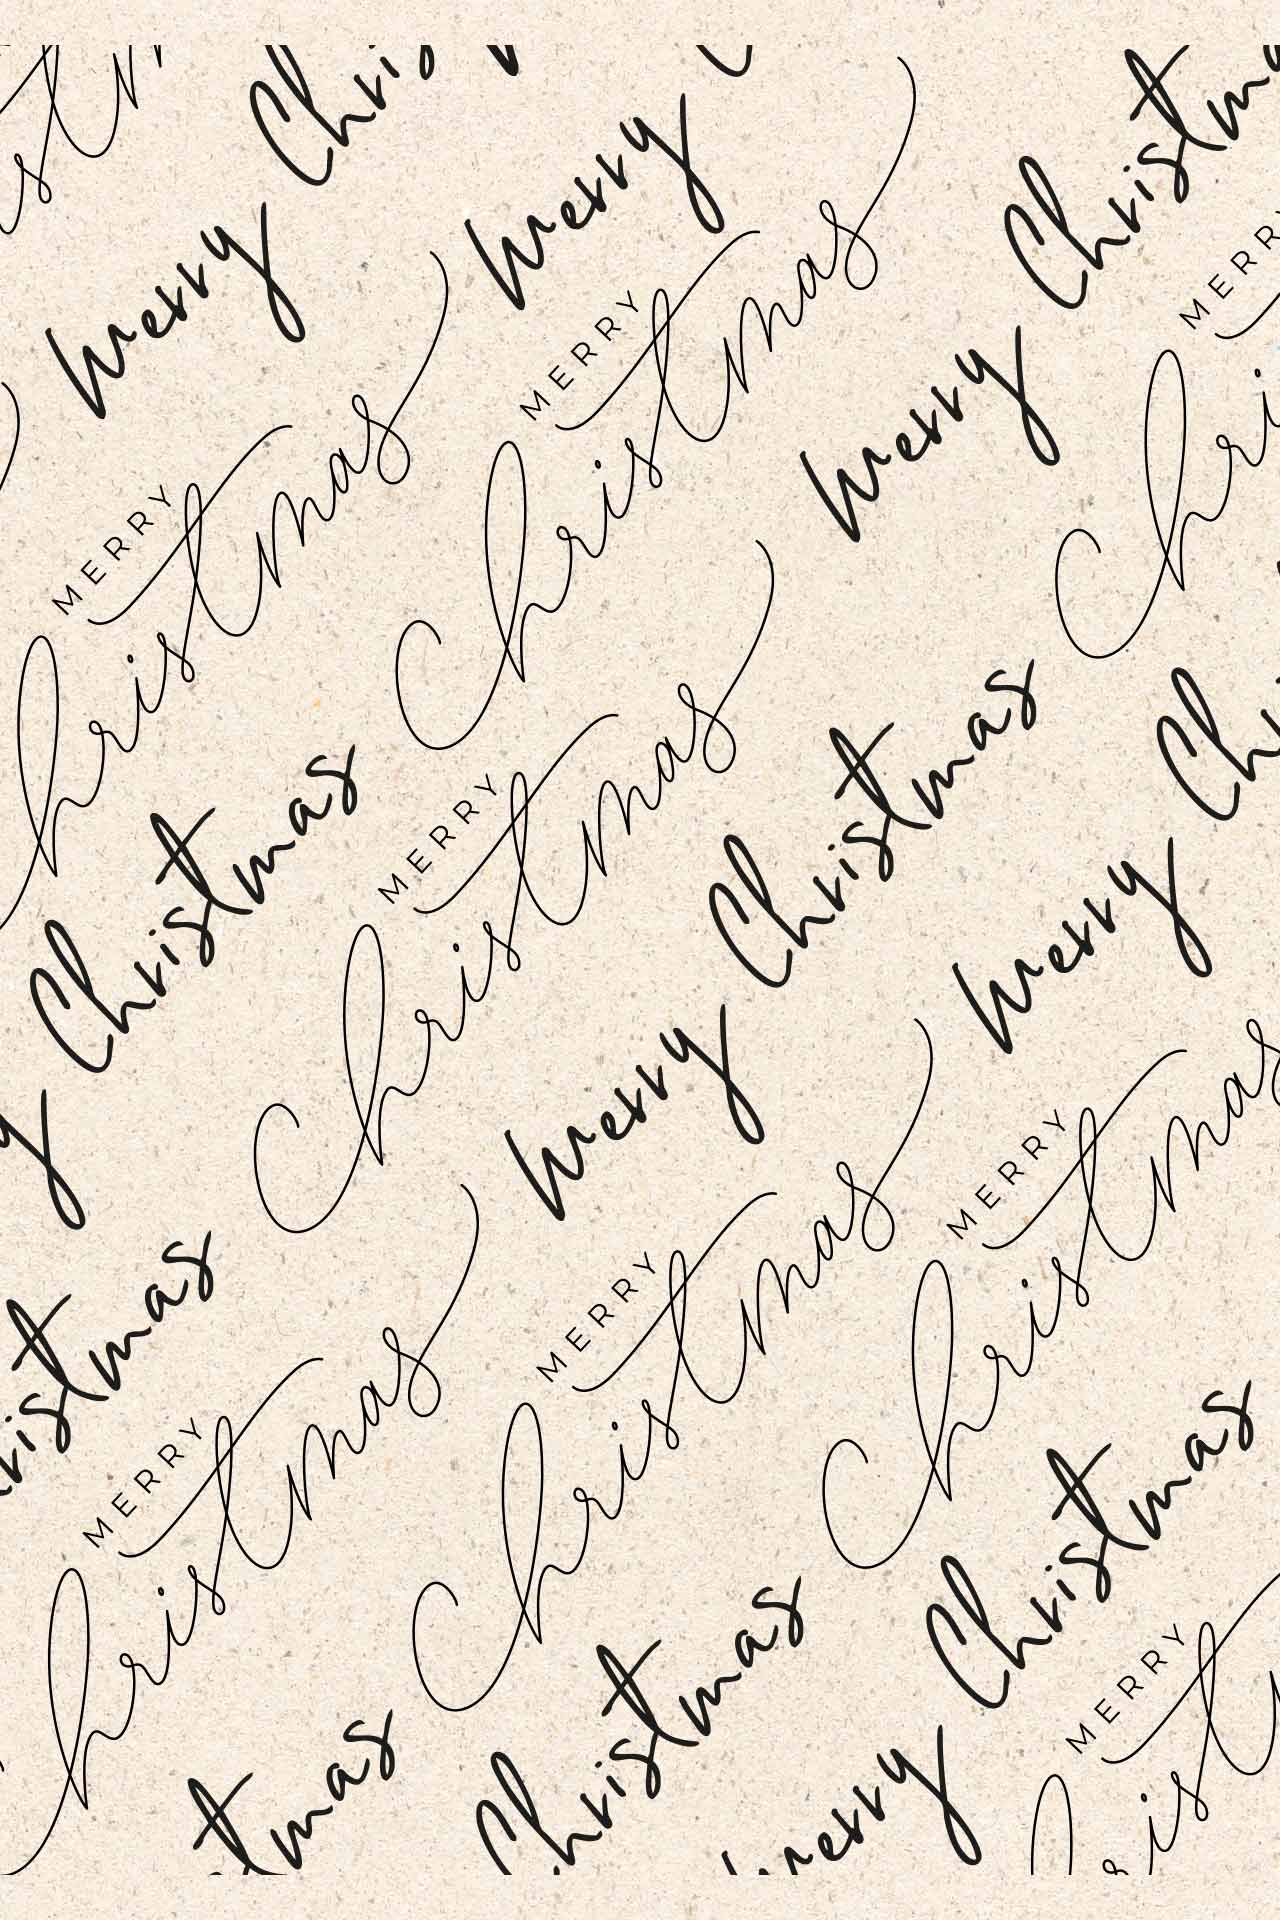 Chris
Merry
Merry
MERRY
Christmas
Christmas
MERRY
Merry
MERRY
christmas
MERRY
Christmas
Christmas
Merry
MERRY
Christmas
Merry
Christmas
Christmas
MERRY
Christmas
MERRY
christmas
MERRY
Christmas
Christmas
Merry
MERRY